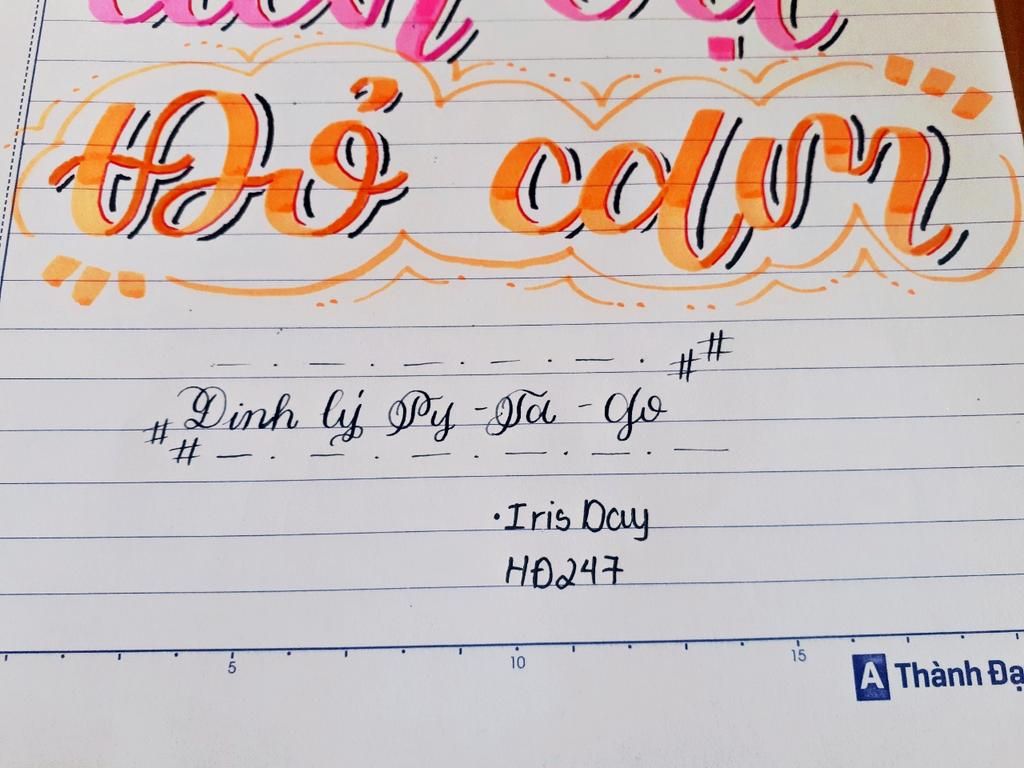 Đỏ cam
##
# Đinh lý Py - Ta - Go
#
· Iris Day
HĐ247
5 10 15
A Thành Đạ